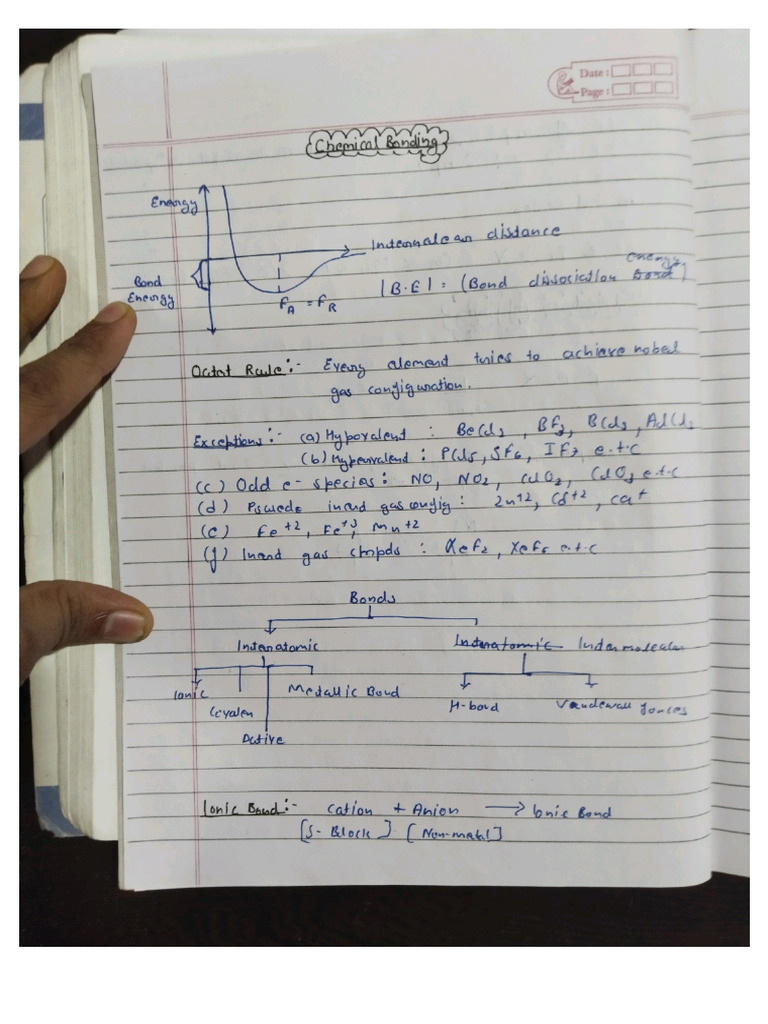 Date :
Page :
Chemical Bonding
Energy
Internuclear distance
Bond
Energy
F_A = F_R
energy
|B.E| = (Bond dissociation bond)
Octet Rule:- Every element tries to achieve nobel
gas configuration.
Exceptions:- (a) Hypovalent : BeCl2 , BF3, BCl3, AlCl3
(b) Hypervalent : PCl5, SF6, IF7 e.t.c
(c) Odd e- species: NO, NO2, ClO2, ClO3 e.t.c
(d) Pseudo inert gas config : Zn+2, Cd+2, Cu+
(e) Fe+2, Fe+3, Mn+2
(f) Inert gas cmpds : XeF2, XeF6 e.t.c
Bonds
Interatomic Interatomic Intermolecular
Ionic Metallic Bond H-bond Vanderwall forces
Covalen
Dative
Ionic Bond:- Cation + Anion → Ionic Bond
[S-Block] [Non-metal]